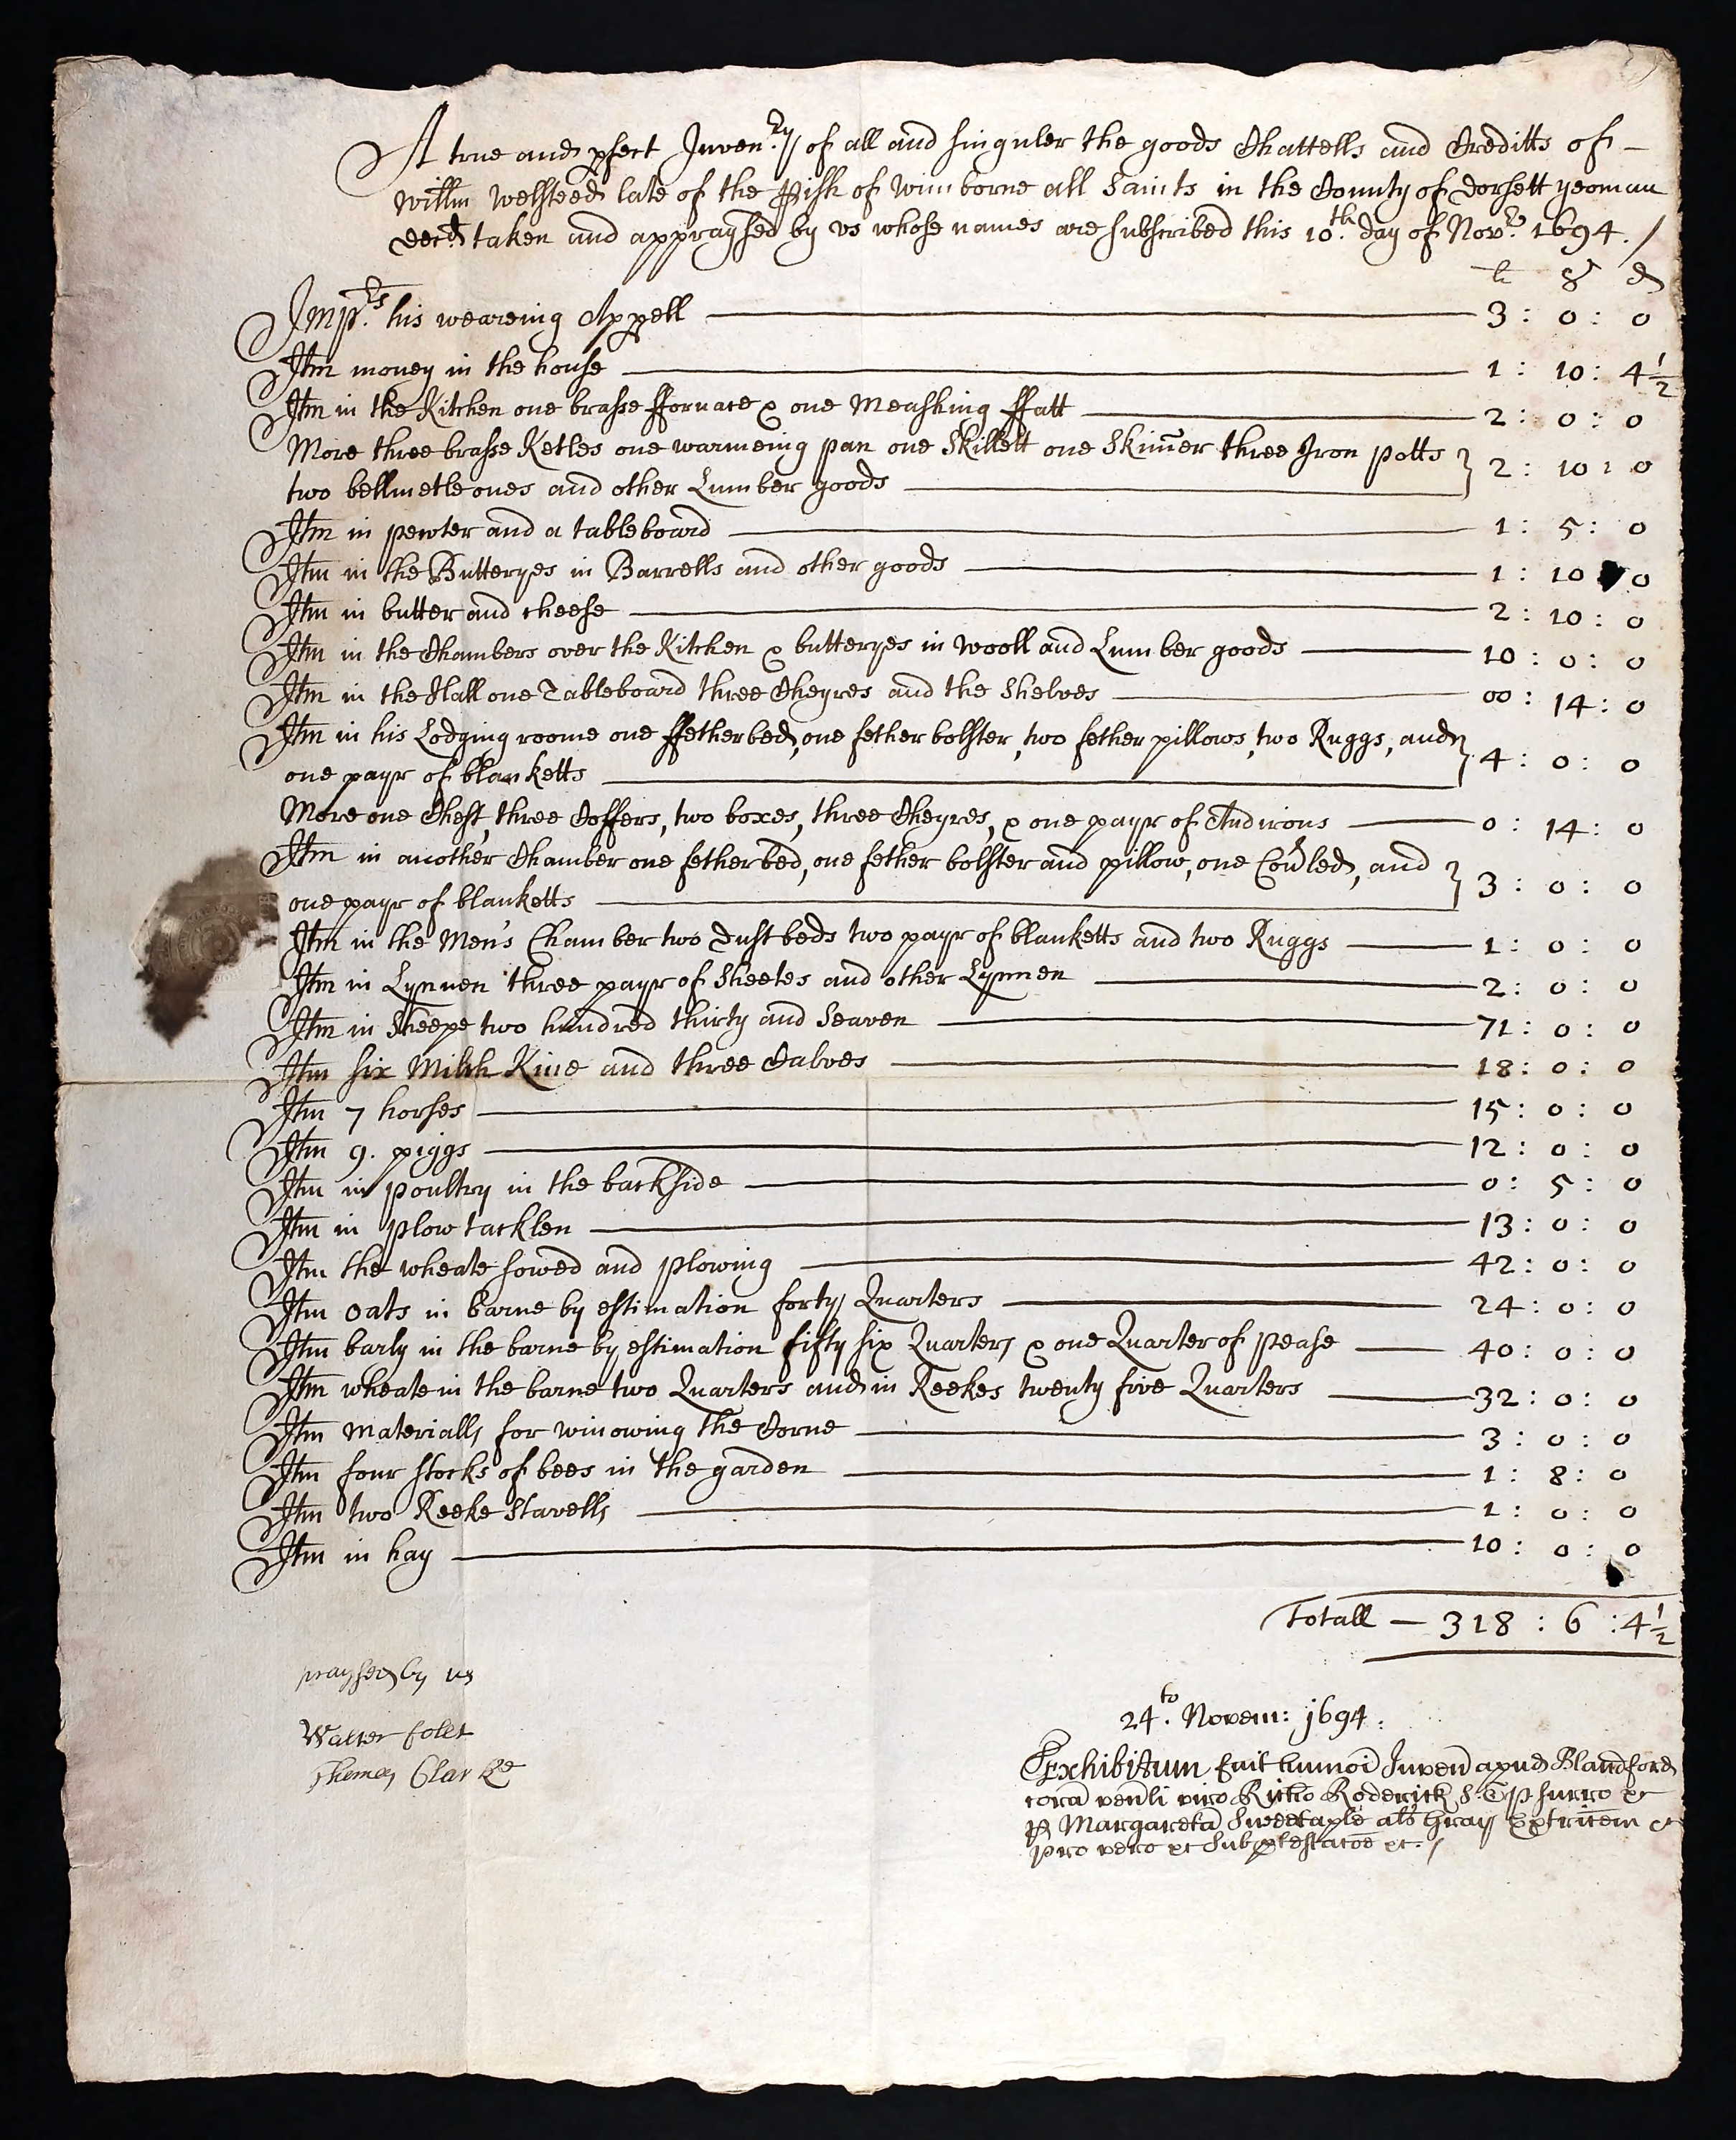 A true and pfect Inven:ry of all and singuler the goods Chattells and Creditts of –
Willm Welsteed late of the pish of Wimborne all Saints in the County of dorsett yeoman
decd taken and appraysed by us whose names are subscribed this 10th. day of Novr. 1694. /
li s d
Imp:rs his weareing Appell — 3 : 0 : 0
Itm money in the house — 1 : 10 : 4 1/2
Itm in the Kitchen one brasse ffornace & one Meashing ffatt — 2 : 0 : 0
More three brasse Ketles one warmeing pan one Skillett one Skim̄er three Iron potts }
two bellmetle ones and other Lumber goods — 2 : 10 : 0
Itm in pewter and a tableboard — 1 : 5 : 0
Itm in the Butteryes in Barrells and other goods — 1 : 10 : 0
Itm in butter and cheese — 2 : 10 : 0
Itm in the Chambers over the Kitchen & butteryes in Wooll and Lumber goods — 10 : 0 : 0
Itm in the Hall one Tableboard three Cheyres and the Shelves — 00 : 14 : 0
Itm in his Lodging roome one ffetherbed, one fether bolster, two fether pillows, two Ruggs, and }
one payr of blanketts — 4 : 0 : 0
More one Chest, three Coffers, two boxes, three Cheyres, & one payr of Andirons — 0 : 14 : 0
Itm in another Chamber one fetherbed, one fether bolster and pillow, one Covrled, and }
one payr of blanketts — 3 : 0 : 0
Itm in the Men's Chamber two dust beds two payr of blanketts and two Ruggs — 1 : 0 : 0
Itm in Lynnen three payr of Sheetes and other Lynnen — 2 : 0 : 0
Itm in Sheepe two hundred thirty and Seaven — 71 : 0 : 0
Itm six Milch Kine and three Calves — 18 : 0 : 0
Itm 7 horses — 15 : 0 : 0
Itm 9. piggs — 12 : 0 : 0
Itm in poultry in the backside — 0 : 5 : 0
Itm in plow tacklen — 13 : 0 : 0
Itm the wheate sowed and plowing — 42 : 0 : 0
Itm oats in barne by estimation forty Quarters — 24 : 0 : 0
Itm barly in the barne by estimation fifty six Quarters & one Quarter of pease — 40 : 0 : 0
Itm wheate in the barne two Quarters and in Reekes twenty five Quarters — 32 : 0 : 0
Itm Materialls for winowing the Corne — 3 : 0 : 0
Itm four stocks of bees in the garden — 1 : 8 : 0
Itm two Reeke Stavells — 1 : 0 : 0
Itm in hay — 10 : 0 : 0
Totall — 318 : 6 : 4 1/2
praysed by us
Walter folet
Thomas Clarke
24.to Novem: 1694 :
Exhibitum fuit humoi Inven apud Blandford
corā venli viro Richo Roderick S.T.P surro &c
p Margaretā Sweetaple als Gray Extricem &c
pro vero &c Sub ptestatoe &c. /